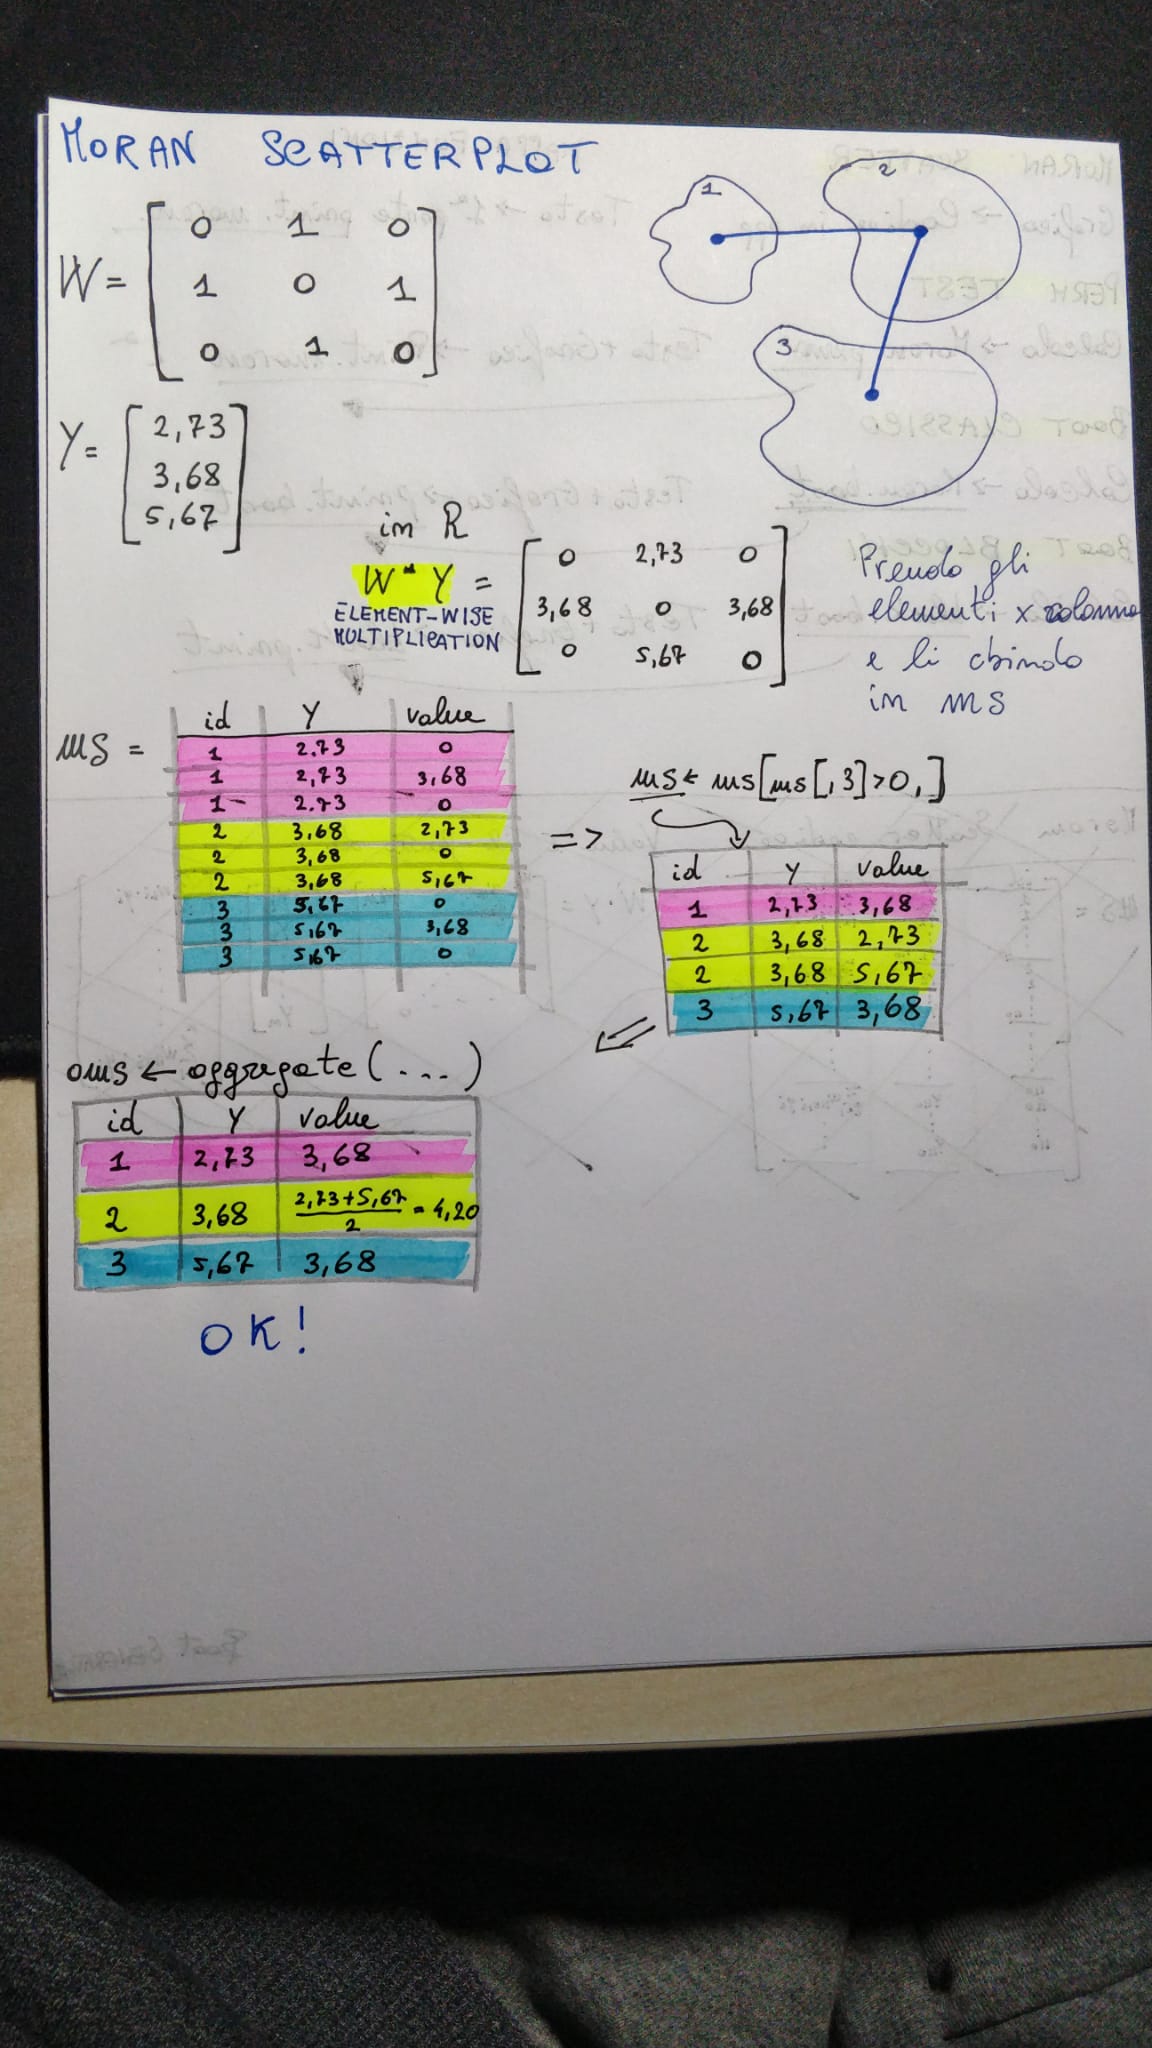 MORAN SCATTERPLOT
W = [ 0 1 0
1 0 1
0 1 0 ]
1
2
3
Y = [ 2,73
3,68
5,67 ]
in R
W * Y = [ 0 2,73 0
3,68 0 3,68
0 5,67 0 ]
ELEMENT-WISE
MULTIPLICATION
Prendo gli
elementi x colonna
e li cbindo
in ms
ms =
id Y value
1 2.73 0
1 2,73 3,68
1 2.73 0
2 3,68 2,73
2 3,68 0
2 3,68 5,67
3 5,67 0
3 5,67 3,68
3 5,67 0
=> ms ← ms[ms[,3]>0,]
id Y value
1 2,73 3,68
2 3,68 2,73
2 3,68 5,67
3 5,67 3,68
oms ← aggregate(...)
id Y value
1 2,73 3,68
2 3,68 2,73+5,67 / 2 = 4,20
3 5,67 3,68
OK!